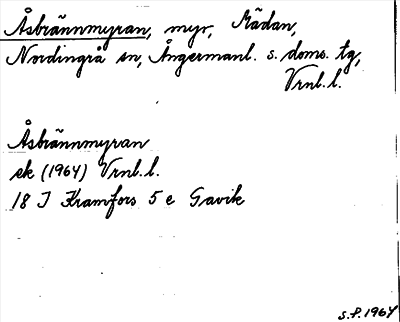 Åsbrännmyran, myr, Rädan,
Nordingrå sn, Ångermanl. s. doms. tg,
Vrnl.l.
Åsbrännmyran
ek (1964) Vrnl.l.
18 I Kramfors 5 e Gavik
S.F. 1964